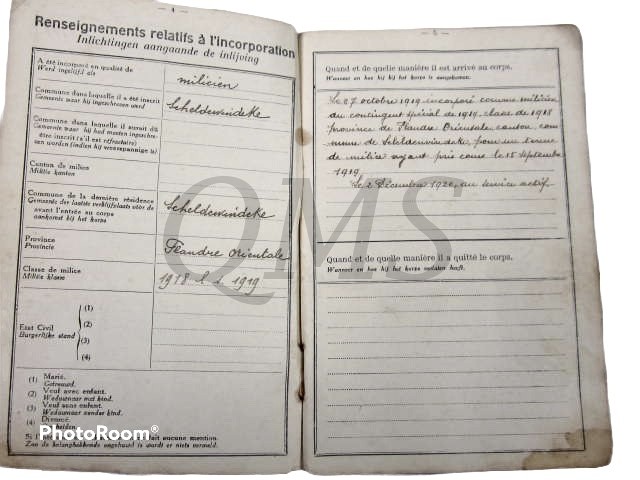 - 4 -
Renseignements relatifs à l'incorporation
Inlichtingen aangaande de inlijving
A été incorporé en qualité de
Werd ingelijfd als
milicien
Commune dans laquelle il a été inscrit
Gemeente waar hij ingeschreven werd
Scheldewindeke
Commune dans laquelle il aurait dû
Gemeente waar hij had moeten ingeschre-
être inscrit (s'il est réfractaire)
ven worden (indien hij weerspannige is)
Canton de milice
Militie kanton
Commune de la dernière résidence
Gemeente der laatste verblijfplaats vóór de
avant l'entrée au corps
aankomst bij het korps
Scheldewindeke
Province
Provincie
Flandre Orientale
Classe de milice
Militie klasse
1918 1919
Etat Civil
Burgerlijke stand
(1)
(2)
(3)
(4)
(1) Marié.
Getrouwd.
(2) Veuf avec enfant.
Weduwnaar met kind.
(3) Veuf sans enfant.
Weduwnaar zonder kind.
(4) Divorcé.
aucune mention.
Zoo de belanghebbende ongehuwd is wordt er niets vermeld.
PhotoRoom
QMS
- 5 -
Quand et de quelle manière il est arrivé au corps.
Wanneer en hoe hij bij het korps is aangekomen.
Le 27 octobre 1919 incorporé comme milicien
du contingent spécial de 1919, classe de 1918
province de Flandre Orientale canton, com
mune de Scheldewindeke, pour un terme
de milice ayant pris cours le 15 Septembre
1919.
Le 2 Décembre 1920, au service actif.
Quand et de quelle manière il a quitté le corps.
Wanneer en hoe hij het korps verlaten heeft.